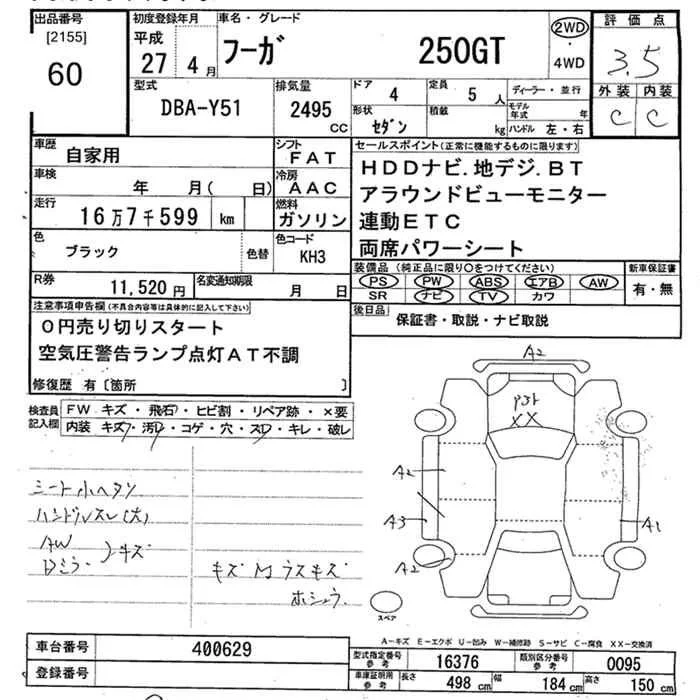 出品番号 初度登録年月 車名・グレード 評価点
[2155]
60
平成 27 4月
フーガ 250GT
2WD・4WD
3.5
型式 排気量 ドア 4 定員 5人 ディーラー・並行 外装 内装
DBA-Y51 2495cc 形状 セダン 積載 kg モデル年式 年 ハンドル 左・右 C C
車歴 自家用 シフト FAT
車検 年 月( 日) 冷房 AAC
走行 16万7千599 km 燃料 ガソリン
色 ブラック 色替 色コード KH3
R券 11,520円 名変通知期限 月 日
セールスポイント(正常に機能するものに限ります)
HDDナビ.地デジ.BT
アラウンドビューモニター
連動ETC
両席パワーシート
装備品 (純正品に限り○をつけてください) 新車保証書
PS PW ABS エアB AW 有・無
SR ナビ TV カワ
後日品 保証書・取説・ナビ取説
注意事項申告欄(不具合内容等は具体的に記入して下さい)
0円売り切りスタート
空気圧警告ランプ点灯AT不調
修復歴 有〔箇所 〕
検査員記入欄 FW キズ・飛石・ヒビ割・リペア跡・×要
内装 キズ・汚・コゲ・穴・スレ・キレ・破レ
シート小ヘタリ
ハンドルスレ(大)
AW
Dミラー キズ
キズ M ラスキズ
ホシュウ
A2
P31
XX
A2
A3
A2
A1
スペア
A-キズ E-エクボ U-凹み W-補修跡 S-サビ C-腐食 XX-交換済
車台番号 400629
登録番号
型式指定番号 参考 16376 類別区分番号 参考 0095
車庫証明用 参考 長さ 498cm 幅 184cm 高さ 150cm